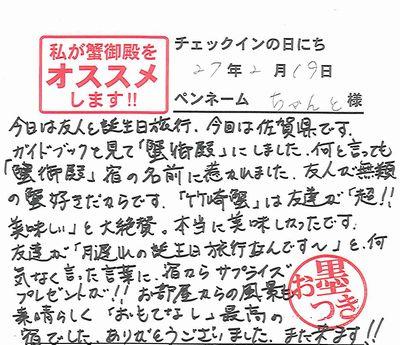 私が蟹御殿を
オススメ
します!!
チェックインの日にち
27年2月19日
ペンネーム ちゃんと様
今日は友人と誕生日旅行、今回は佐賀県です。
ガイドブックを見て「蟹御殿」にしました。何と言っても
「蟹御殿」宿の名前に惹かれました。友人が無類
の蟹好きだからです。「竹崎蟹」は友達が「超!!
美味しい」と大絶賛。本当に美味しかったです。
友達が「月遅れの誕生日旅行なんです〜」と、何
気なく言った言葉に、宿からサプライズ
プレゼントが!! お部屋からの風景も
素晴らしく「おもてなし」最高の
宿でした。ありがとうございました。また来ます!!
お墨つき